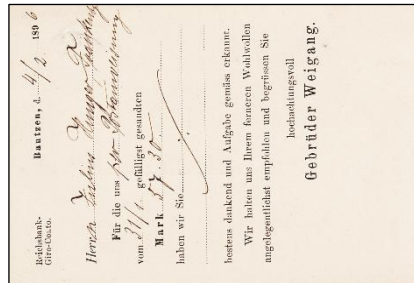 Reichsbank-
Giro-Conto.
Bautzen, d. 4/2 1896
Herrn Julius
Für die uns per
vom 31/1. gefälligst gesandten
Mark 57.30
haben wir Sie
bestens dankend und Aufgabe gemäss erkannt.
Wir halten uns Ihrem ferneren Wohlwollen
angelegentlichst empfohlen und begrüssen Sie
hochachtungsvoll
Gebrüder Weigang.